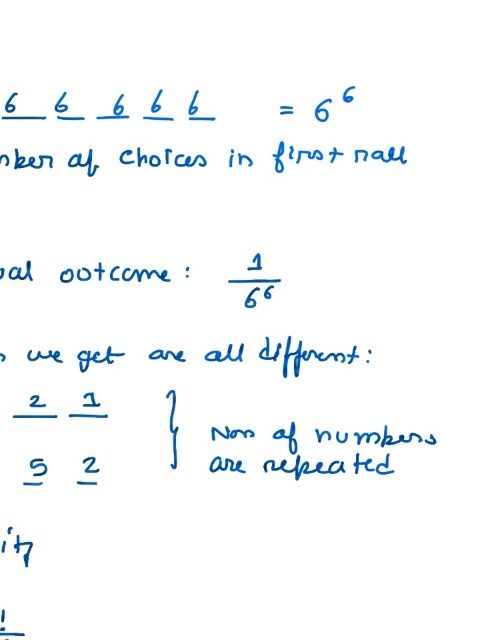 6 6 6 6 6 = 6^6
nber of choices in first roll
al outcome : 1/6^6
s we get are all different :
2 1
Non of numbers
5 2
are repeated
ity
!